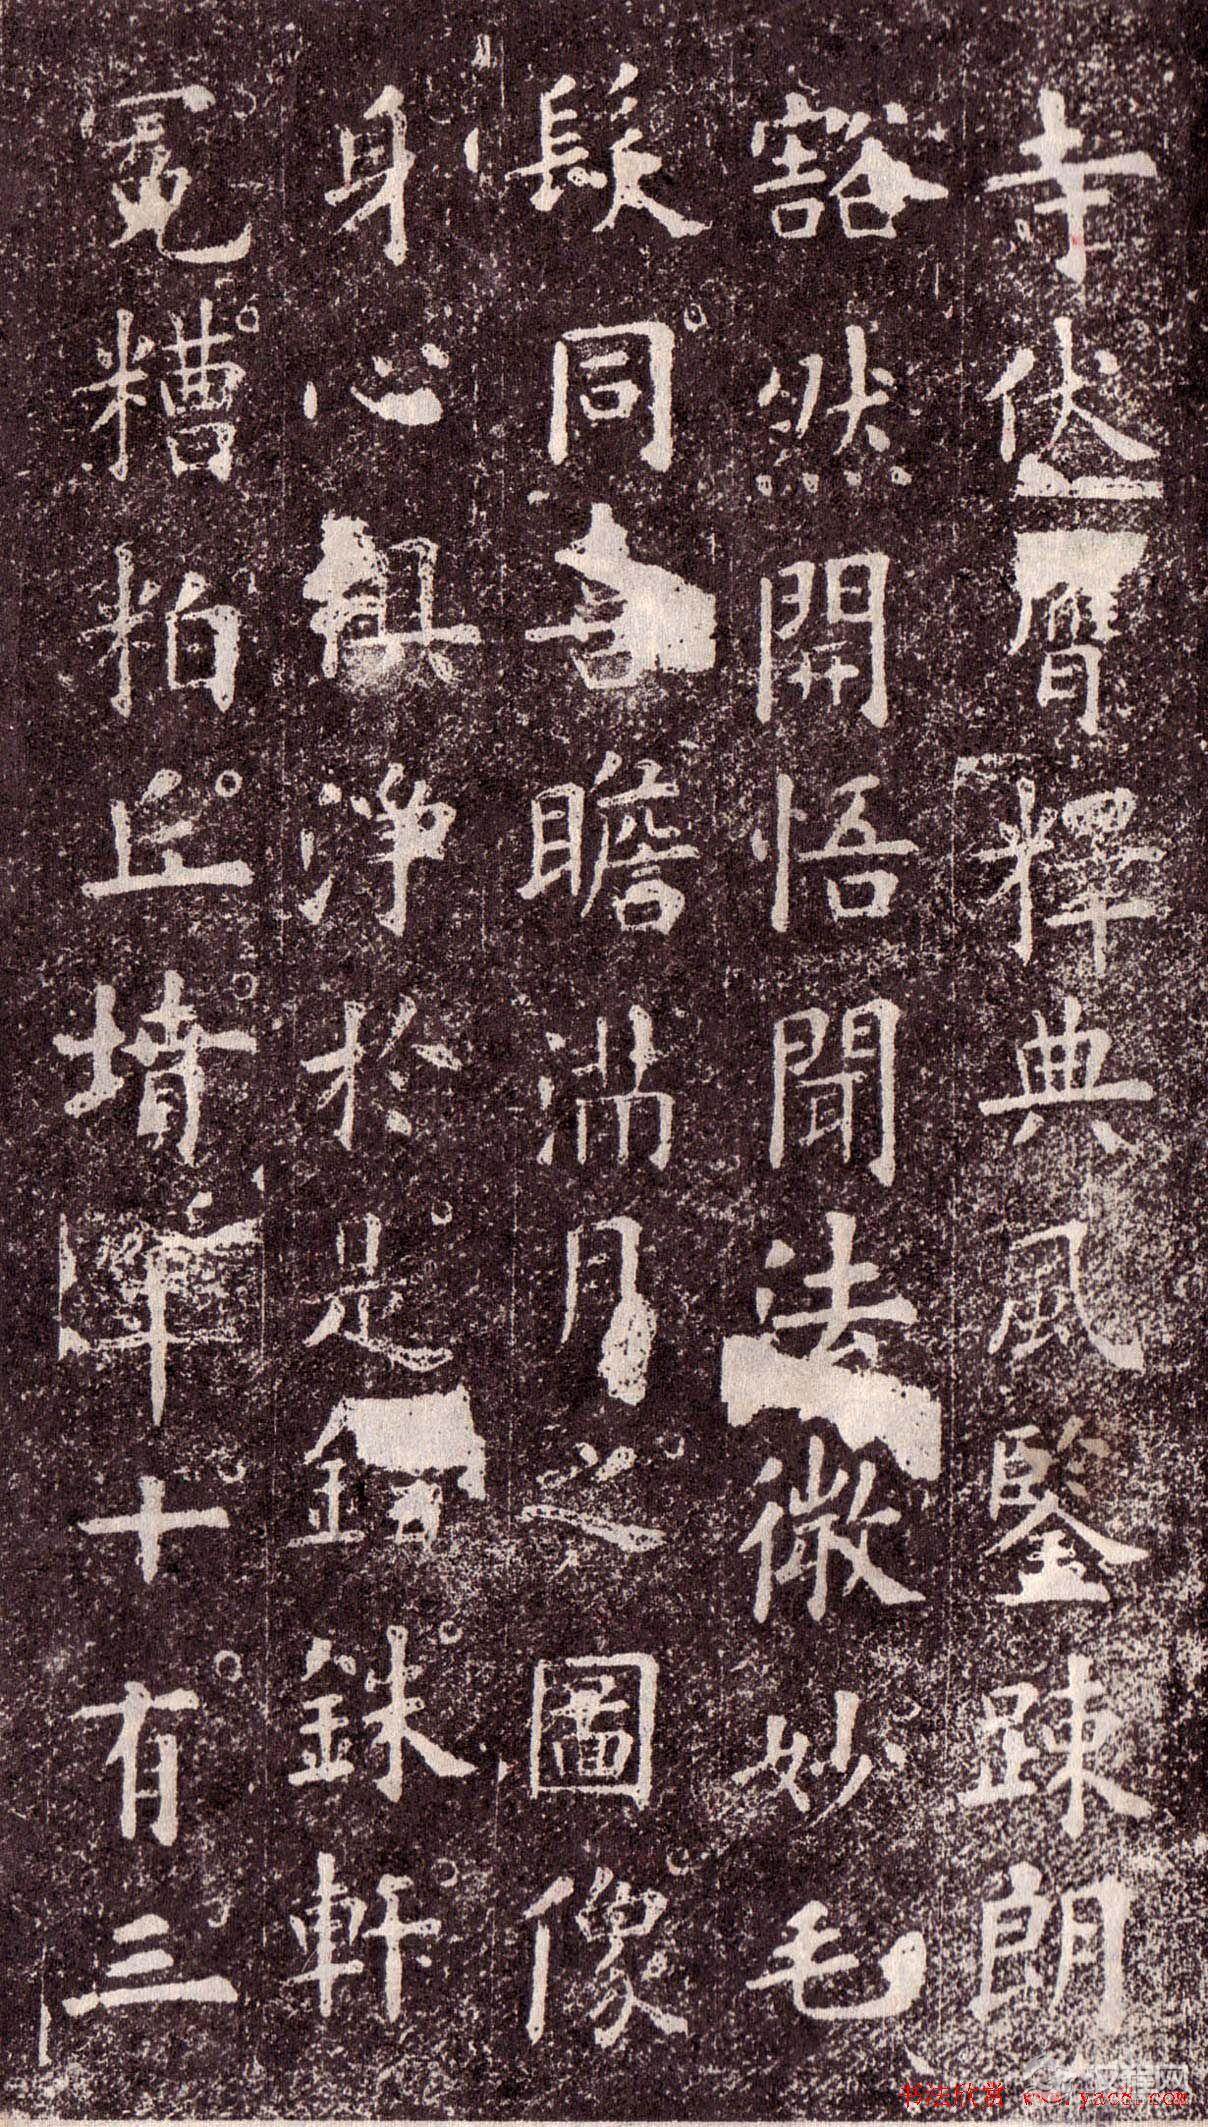 寺伏膺釋典風鑒踈朗
豁然開悟聞法微妙毛
髮同喜瞻滿月之圖像
身心俱淨於是錙銖軒
冕糟粕丘墳年十有三
书法欣赏 www.yac8.com